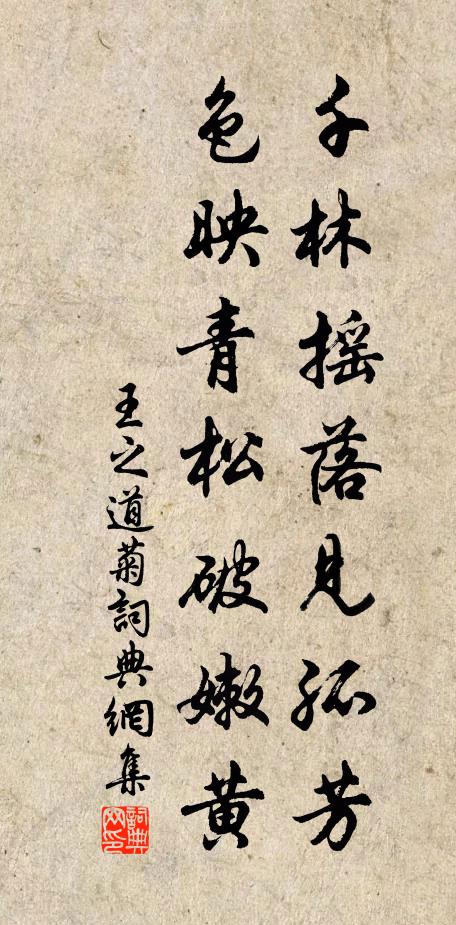 千林摇落見孤芳
色映青松破嫩黄
王之道菊詞典網集
詞典网印